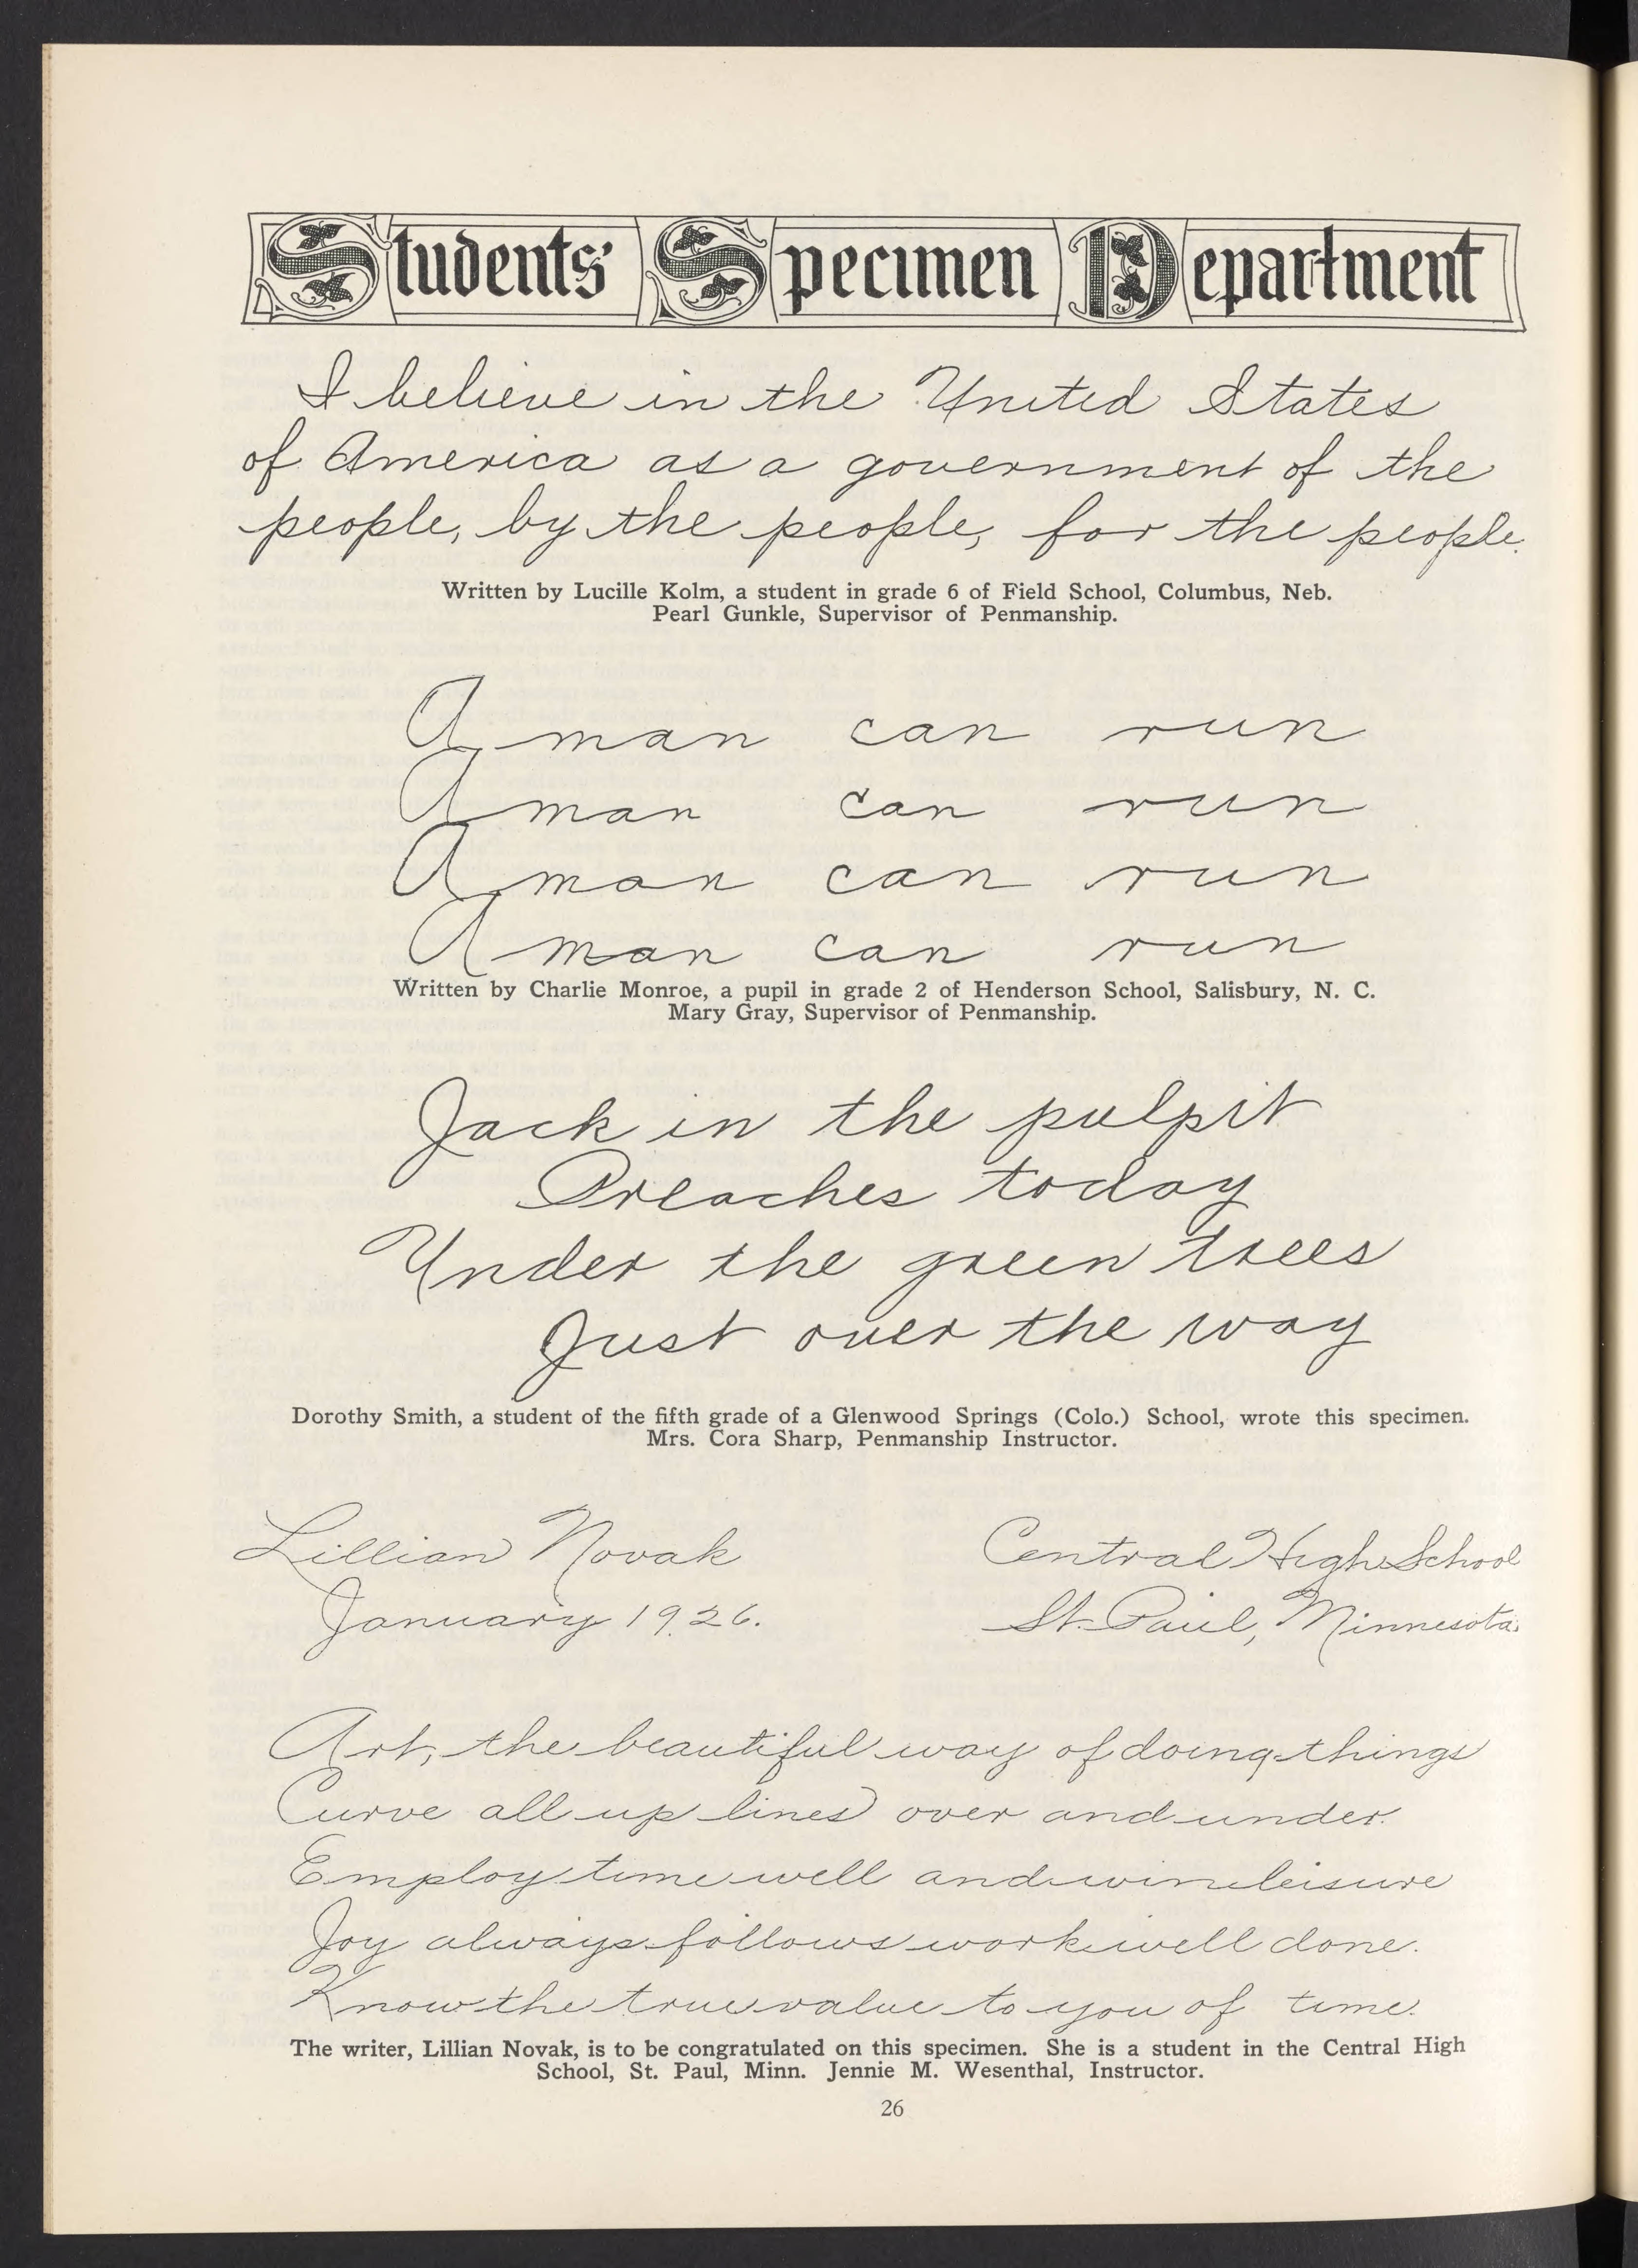 Students' Specimen Department
I believe in the United States
of America as a government of the
people, by the people, for the people.
Written by Lucille Kolm, a student in grade 6 of Field School, Columbus, Neb.
Pearl Gunkle, Supervisor of Penmanship.
A man can run
A man can run
A man can run
A man can run
Written by Charlie Monroe, a pupil in grade 2 of Henderson School, Salisbury, N. C.
Mary Gray, Supervisor of Penmanship.
Jack in the pulpit
Preaches today
Under the green trees
Just over the way
Dorothy Smith, a student of the fifth grade of a Glenwood Springs (Colo.) School, wrote this specimen.
Mrs. Cora Sharp, Penmanship Instructor.
Lillian Novak Central High School
January 1926. St. Paul, Minnesota.
Art, the beautiful way of doing things
Curve all up lines over and under.
Employ time well and win leisure
Joy always follows work well done.
Know the true value to you of time.
The writer, Lillian Novak, is to be congratulated on this specimen. She is a student in the Central High
School, St. Paul, Minn. Jennie M. Wesenthal, Instructor.
26